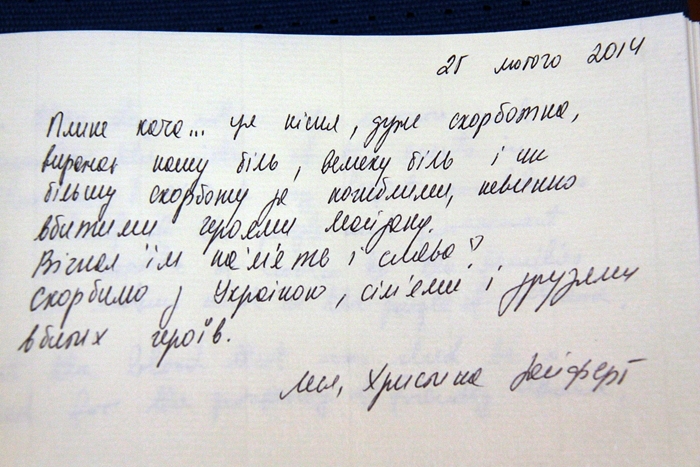 25 лютого 2014
Плине кача... ця пісня, дуже скорботна,
виражає нашу біль, велику біль і ще
більшу скорботу за погиблими, невинно
вбитими героями Майдану.
Вічная їм пам'ять і слава!
Скорбимо з Україною, сім'ями і друзями
вбитих героїв.
Леся, Христина Зайферт